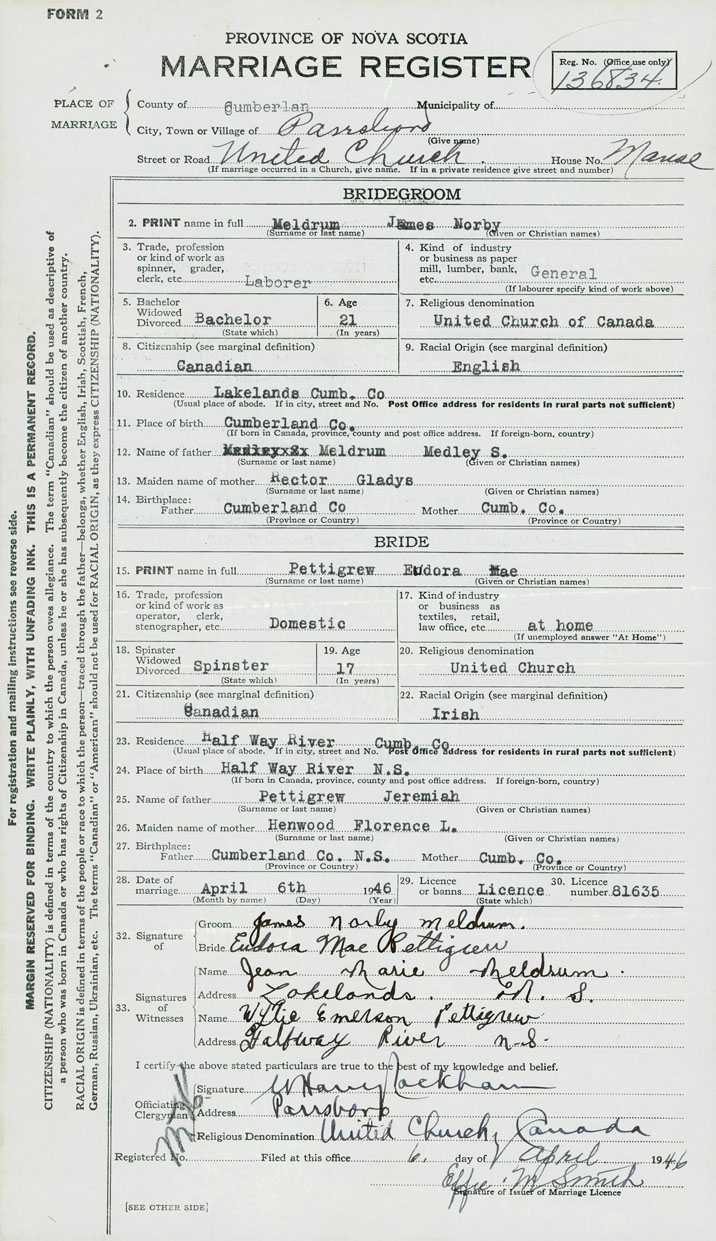 FORM 2
PROVINCE OF NOVA SCOTIA
MARRIAGE REGISTER
Reg. No. (Office use only)
136834
PLACE OF MARRIAGE
County of Cumberlan Municipality of
City, Town or Village of Parrsboro
(Give name)
Street or Road United Church. House No. Manse
(If marriage occurred in a Church, give name. If in a private residence give street and number)
BRIDEGROOM
2. PRINT name in full Meldrum James Norby
(Surname or last name) (Given or Christian names)
3. Trade, profession or kind of work as spinner, grader, clerk, etc. Laborer
4. Kind of industry or business as paper mill, lumber, bank, etc. General
(If labourer specify kind of work above)
5. Bachelor Widowed Divorced Bachelor
(State which)
6. Age 21
(In years)
7. Religious denomination
United Church of Canada
8. Citizenship (see marginal definition)
Canadian
9. Racial Origin (see marginal definition)
English
10. Residence Lakelands Cumb. Co
(Usual place of abode. If in city, street and No. Post Office address for residents in rural parts not sufficient)
11. Place of birth Cumberland Co.
(If born in Canada, province, county and post office address. If foreign-born, country)
12. Name of father Meldrum Medley S.
(Surname or last name) (Given or Christian names)
13. Maiden name of mother Rector Gladys
(Surname or last name) (Given or Christian names)
14. Birthplace:
Father Cumberland Co Mother Cumb. Co.
(Province or Country) (Province or Country)
BRIDE
15. PRINT name in full Pettigrew Eudora Mae
(Surname or last name) (Given or Christian names)
16. Trade, profession or kind of work as operator, clerk, stenographer, etc. Domestic
17. Kind of industry or business as textiles, retail, law office, etc. at home
(If unemployed answer "At Home")
18. Spinster Widowed Divorced Spinster
(State which)
19. Age 17
(In years)
20. Religious denomination
United Church
21. Citizenship (see marginal definition)
Canadian
22. Racial Origin (see marginal definition)
Irish
23. Residence Half Way River Cumb. Co
(Usual place of abode. If in city, street and No. Post Office address for residents in rural parts not sufficient)
24. Place of birth Half Way River N.S.
(If born in Canada, province, county and post office address. If foreign-born, country)
25. Name of father Pettigrew Jeremiah
(Surname or last name) (Given or Christian names)
26. Maiden name of mother Henwood Florence L.
(Surname or last name) (Given or Christian names)
27. Birthplace:
Father Cumberland Co. N.S. Mother Cumb. Co.
(Province or Country) (Province or Country)
28. Date of marriage April 6th 1946
(Month by name) (Day) (Year)
29. Licence or banns Licence
(State which)
30. Licence number 81635
32. Signature of
Groom James Norby Meldrum.
Bride Eudora Mae Pettigrew
33. Signatures of Witnesses
Name Jean Marie Meldrum.
Address Lakelands. N. S.
Name Wylie Emerson Pettigrew
Address Halfway River N.S.
I certify the above stated particulars are true to the best of my knowledge and belief.
Officiating Clergyman
Signature W Harry
Address Parrsboro
Religious Denomination United Church, Canada
Registered No. Filed at this office 6. day of April 1946
Effie M Smith
Signature of Issuer of Marriage Licence
[SEE OTHER SIDE]
For registration and mailing instructions see reverse side.
MARGIN RESERVED FOR BINDING. WRITE PLAINLY, WITH UNFADING INK. THIS IS A PERMANENT RECORD.
CITIZENSHIP (NATIONALITY) is defined in terms of the country to which the person owes allegiance. The term "Canadian" should be used as descriptive of
a person who was born in Canada or who has rights of Citizenship in Canada, unless he or she has subsequently become the citizen of another country.
RACIAL ORIGIN is defined in terms of the people or race to which the person—traced through the father—belongs, whether English, Irish, Scottish, French,
German, Russian, Ukrainian, etc. The terms "Canadian" or "American" should not be used for RACIAL ORIGIN, as they express CITIZENSHIP (NATIONALITY).